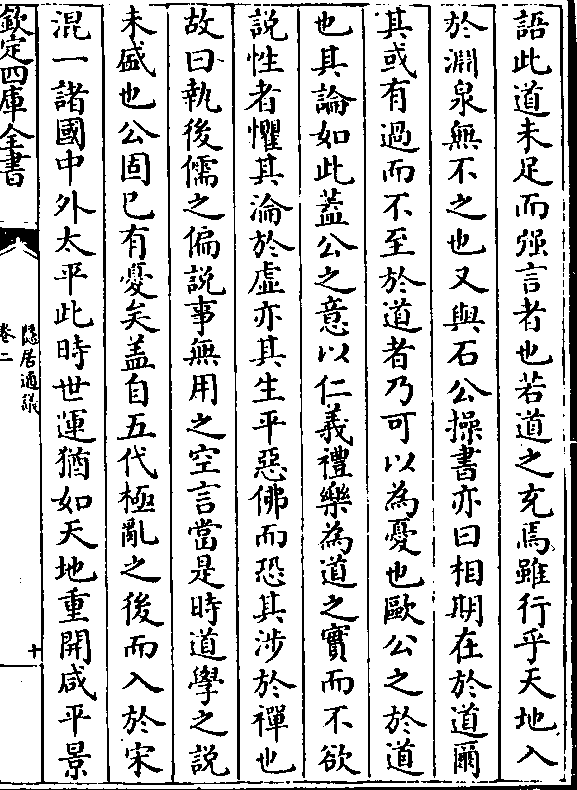 語此道未足而强言者也若道之充焉雖行乎天地入
於淵泉無不之也又與石公操書亦曰相期在於道爾
其或有過而不至於道者乃可以為憂也歐公之於道
也其論如此蓋公之意以仁義禮樂為道之實而不欲
說性者懼其淪於虛亦其生平惡佛而恐其涉於禪也
故曰執後儒之偏説事無用之空言當是時道學之説
未盛也公固已有憂矣盖自五代極亂之後而入於宋
混一諸國中外太平此時世運猶如天地重開咸平景
欽定四庫全書
隱居通議
卷二
十